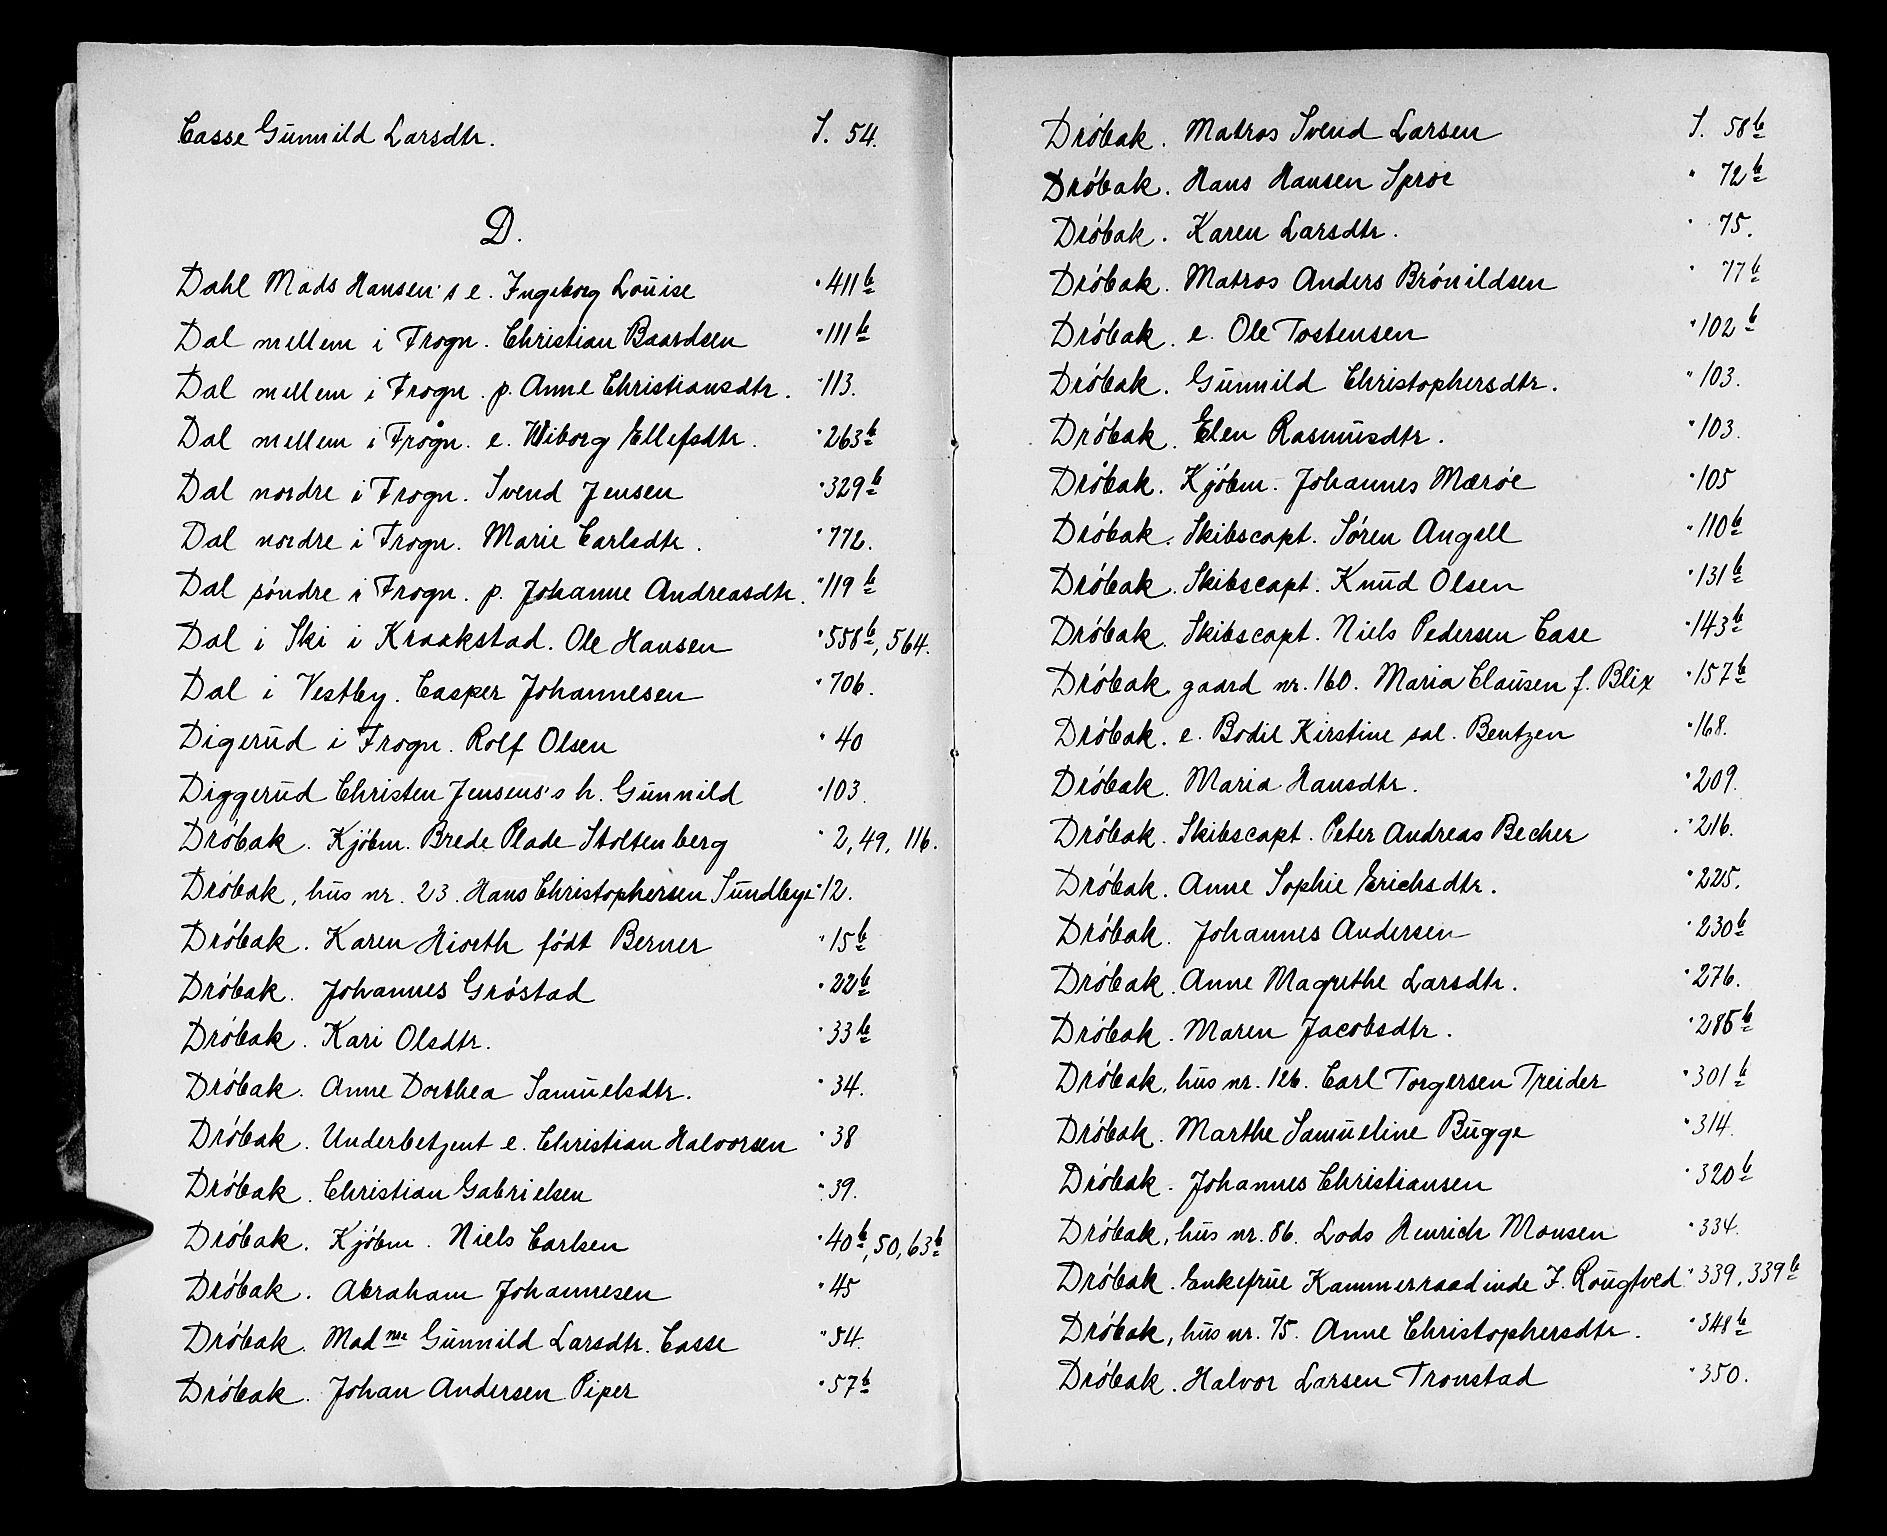 Casse Gunnild Larsdtr. S. 54.
D.
Dahl Mads Hansen's e. Ingeborg Louise " 411b
Dal mellem i Frogn. Christian Baardsen " 111b
Dal mellem i Frogn. p. Anne Christiansdtr. " 113.
Dal mellem i Frogn. e. Wiborg Ellefsdtr. " 263b
Dal nordre i Frogn. Svend Jensen " 329b
Dal nordre i Frogn. Marie Carlsdtr. " 772.
Dal søndre i Frogn. p. Johanne Andreasdtr. " 119b
Dal i Ski i Kraakstad. Ole Hansen " 558b, 564.
Dal i Vestby. Casper Johannesen " 706.
Digerud i Frogn. Rolf Olsen " 40
Diggerud Christen Jensens's h. Gunnild " 103.
Drøbak. Kjøbm. Brede Plade Stoltenberg " 2, 49, 116.
Drøbak, hus nr. 23. Hans Christophersen Sundbye " 12.
Drøbak. Karen Hiorth født Berner " 15b
Drøbak. Johannes Grøstad " 22b
Drøbak. Kari Olsdtr. " 33b
Drøbak. Anne Dorthea Samuelsdtr. " 34.
Drøbak. Underbetjent e. Christian Halvorsen " 38
Drøbak. Christian Gabrielsen " 39.
Drøbak. Kjøbm. Niels Carlsen " 40b, 50, 63b
Drøbak. Abraham Johannesen " 45
Drøbak. Madme Gunnild Larsdtr. Casse " 54.
Drøbak. Johan Andersen Piper " 57b
Drøbak. Matros Svend Larsen S. 58b
Drøbak. Hans Hansen Sproe " 72b
Drøbak. Karen Larsdtr. " 75.
Drøbak. Matros Anders Brønildsen " 77b
Drøbak. e. Ole Tostensen " 102b
Drøbak. Gunnild Christophersdtr. " 103.
Drøbak. Elen Rasmusdtr. " 103.
Drøbak. Kjøbm. Johannes Mærøe " 105
Drøbak. Skibscapt. Søren Angell " 110b
Drøbak. Skibscapt. Knud Olsen " 131b
Drøbak. Skibscapt. Niels Pedersen Case " 143b
Drøbak gaard nr. 160. Maria Clausen f. Blix " 157b
Drøbak. e. Bodil Kirstine sal. Bentzen " 168.
Drøbak. Maria Hansdtr. " 209.
Drøbak. Skibscapt. Peter Andreas Becher " 216.
Drøbak. Anne Sophie Erichsdtr. " 225.
Drøbak. Johannes Andersen " 230b
Drøbak. Anne Magrethe Larsdtr. " 276.
Drøbak. Maren Jacobsdtr. " 285b
Drøbak, hus nr. 126. Carl Torgersen Treider " 301b
Drøbak. Marthe Samueline Bugge " 314.
Drøbak. Johannes Christiansen " 320b
Drøbak, hus nr. 86. Lods Henrich Monsen " 334.
Drøbak. Enkefrue Kammerraadinde J. Rougtved " 339, 339b
Drøbak, hus nr. 75. Anne Christophersdtr. " 348b
Drøbak. Halvor Larsen Tronstad " 350.